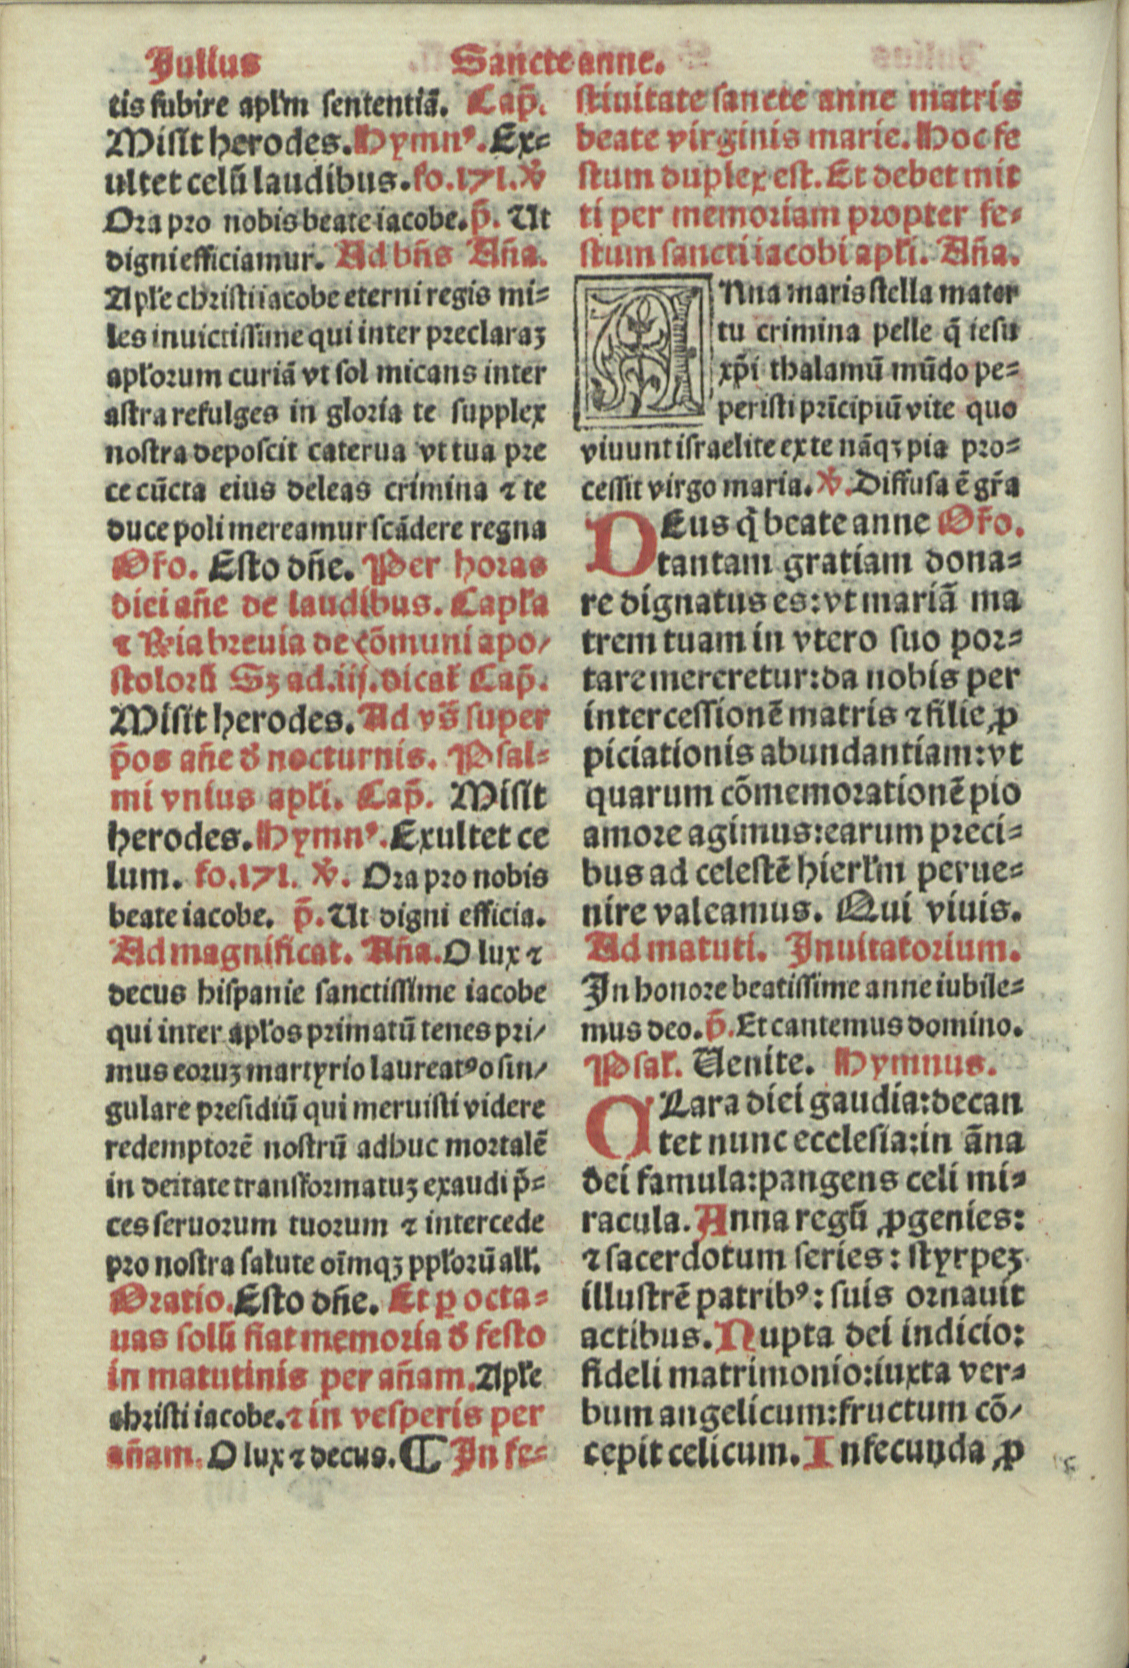 Julius Sancte anne.
tis subire apl'm sententiā. Cap̄.
Misit herodes. Hymnꝰ. Ex=
ultet celū laudibus. fo.171. ℣
Ora pro nobis beate iacobe. p̄. Ut
digni efficiamur. Ad bn̄s An̄a.
Apl'e christi iacobe eterni regis mi=
les inuictissime qui inter preclaraꝫ
apl'orum curiā vt sol micans inter
astra refulges in gloria te supplex
nostra deposcit caterua vt tua pre
ce cūcta eius deleas crimina ⁊ te
duce poli mereamur scādere regna
Or̄o. Esto dn̄e. Per horas
diei an̄e de laudibus. Capl'a
⁊ R̄ia breuia de cōmuni apo/
stolorū Sꝫ ad.iij. dicat̄ Cap̄.
Misit herodes. Ad vs̄ super
p̄os an̄e đ nocturnis. Psal=
mi vnius apl'i. Cap̄. Misit
herodes. Hymnꝰ. Exultet ce
lum. fo.171. ℣. Ora pro nobis
beate iacobe. p̄. Ut digni efficia.
Ad magnificat. An̄a. O lux ⁊
decus hispanie sanctissime iacobe
qui inter apl'os primatū tenes pri/
mus eoruꝫ martyrio laureatꝰ o sin/
gulare presidiū qui meruisti videre
redemptorē nostrū adhuc mortalē
in deitate transformatuꝫ exaudi p̄=
ces seruorum tuorum ⁊ intercede
pro nostra salute oīmqꝫ ppl'orū all'.
Oratio. Esto dn̄e. Et ꝑ octa=
uas solū fiat memoria đ festo
in matutinis per an̄am. Apl'e
christi iacobe. ⁊ in vesperis per
an̄am. O lux ⁊ decus. ¶ In fe=
stiuitate sancte anne matris
beate virginis marie. Hoc fe
stum duplex est. Et debet mit
ti per memoriam propter fe=
stum sancti iacobi apl'i. An̄a.
ANna maris stella mater
tu crimina pelle q̄ iesu
xp̄i thalamū mūdo pe=
peristi prīcipiū vite quo
viuunt israelite ex te nāqꝫ pia pro=
cessit virgo maria. ℣. Diffusa ē gr̄a
DEus q̄ beate anne Or̄o.
tantam gratiam dona=
re dignatus es: vt mariā ma
trem tuam in vtero suo por=
tare mereretur: da nobis per
intercessionē matris ⁊ filie ꝓ
piciationis abundantiam: vt
quarum cōmemorationē pio
amore agimus: earum preci=
bus ad celestē hierl'm perue=
nire valeamus. Qui viuis.
Ad matuti. Inuitatorium.
In honore beatissime anne iubile=
mus deo. p̄. Et cantemus domino.
Psal'. Uenite. Hymnus.
CLara diei gaudia: decan
tet nunc ecclesia: in āna
dei famula: pangens celi mi=
racula. Anna regū ꝓgenies:
⁊ sacerdotum series: styrpeꝫ
illustrē patribꝰ: suis ornauit
actibus. Nupta dei indicio:
fideli matrimonio: iuxta ver=
bum angelicum: fructum cō/
cepit celicum. Infecunda ꝓ